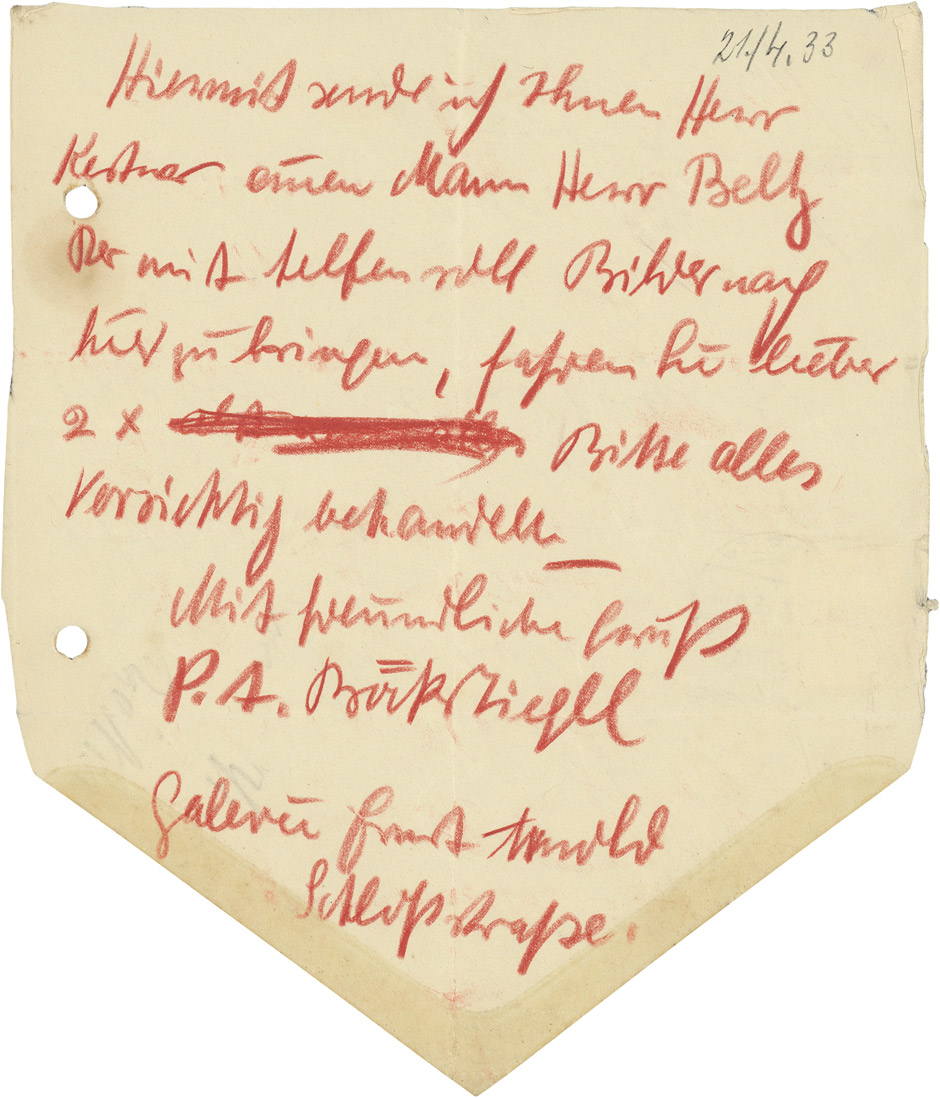 21./4.33
Hiermit sende ich Ihnen Herr
Kestner einen Mann Herr Beltz
Der mit helfen soll Bilder nach
hier zu bringen, fahren Sie lieber
2 x Bitte alles
Vorsichtig behandeln
Mit freundlichen Gruß
P. A. Böckstiegel
Galerie Ernst Arnold
Schloßstraße.